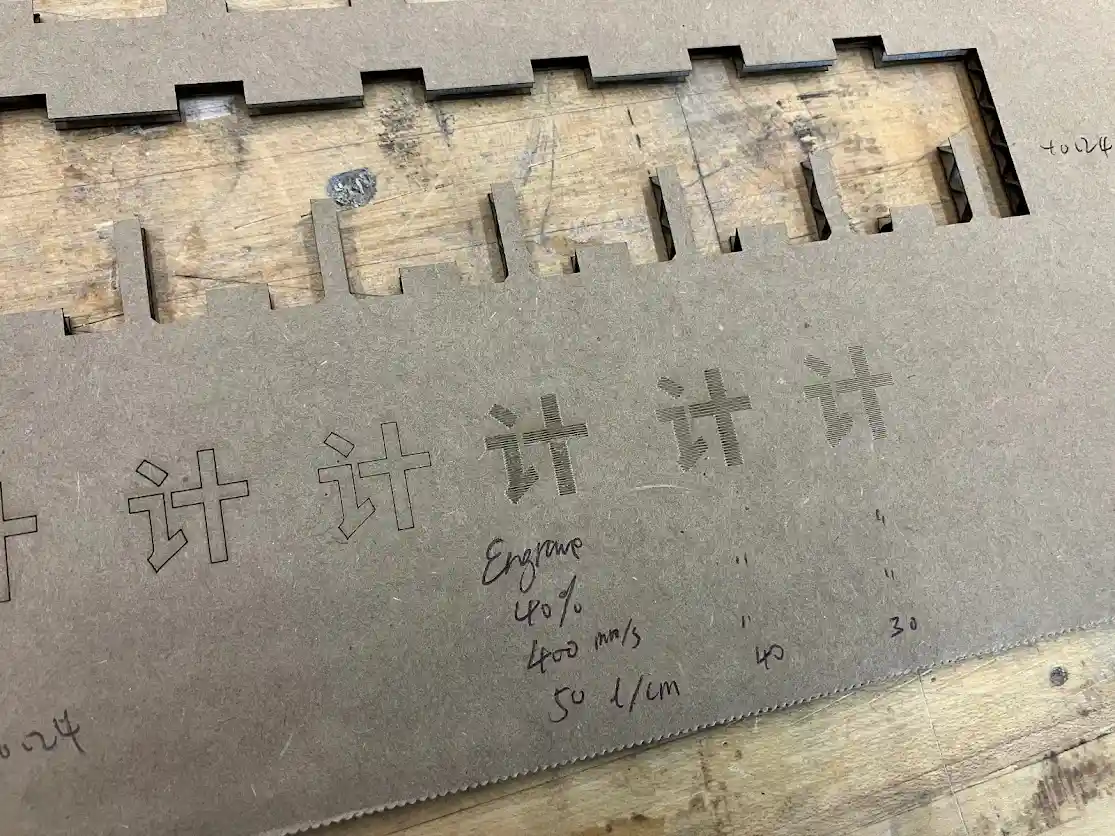 +0.24
计 计 计 计 计
Engrave " "
40% " "
400 mm/s
50 l/cm 40 30
0.24